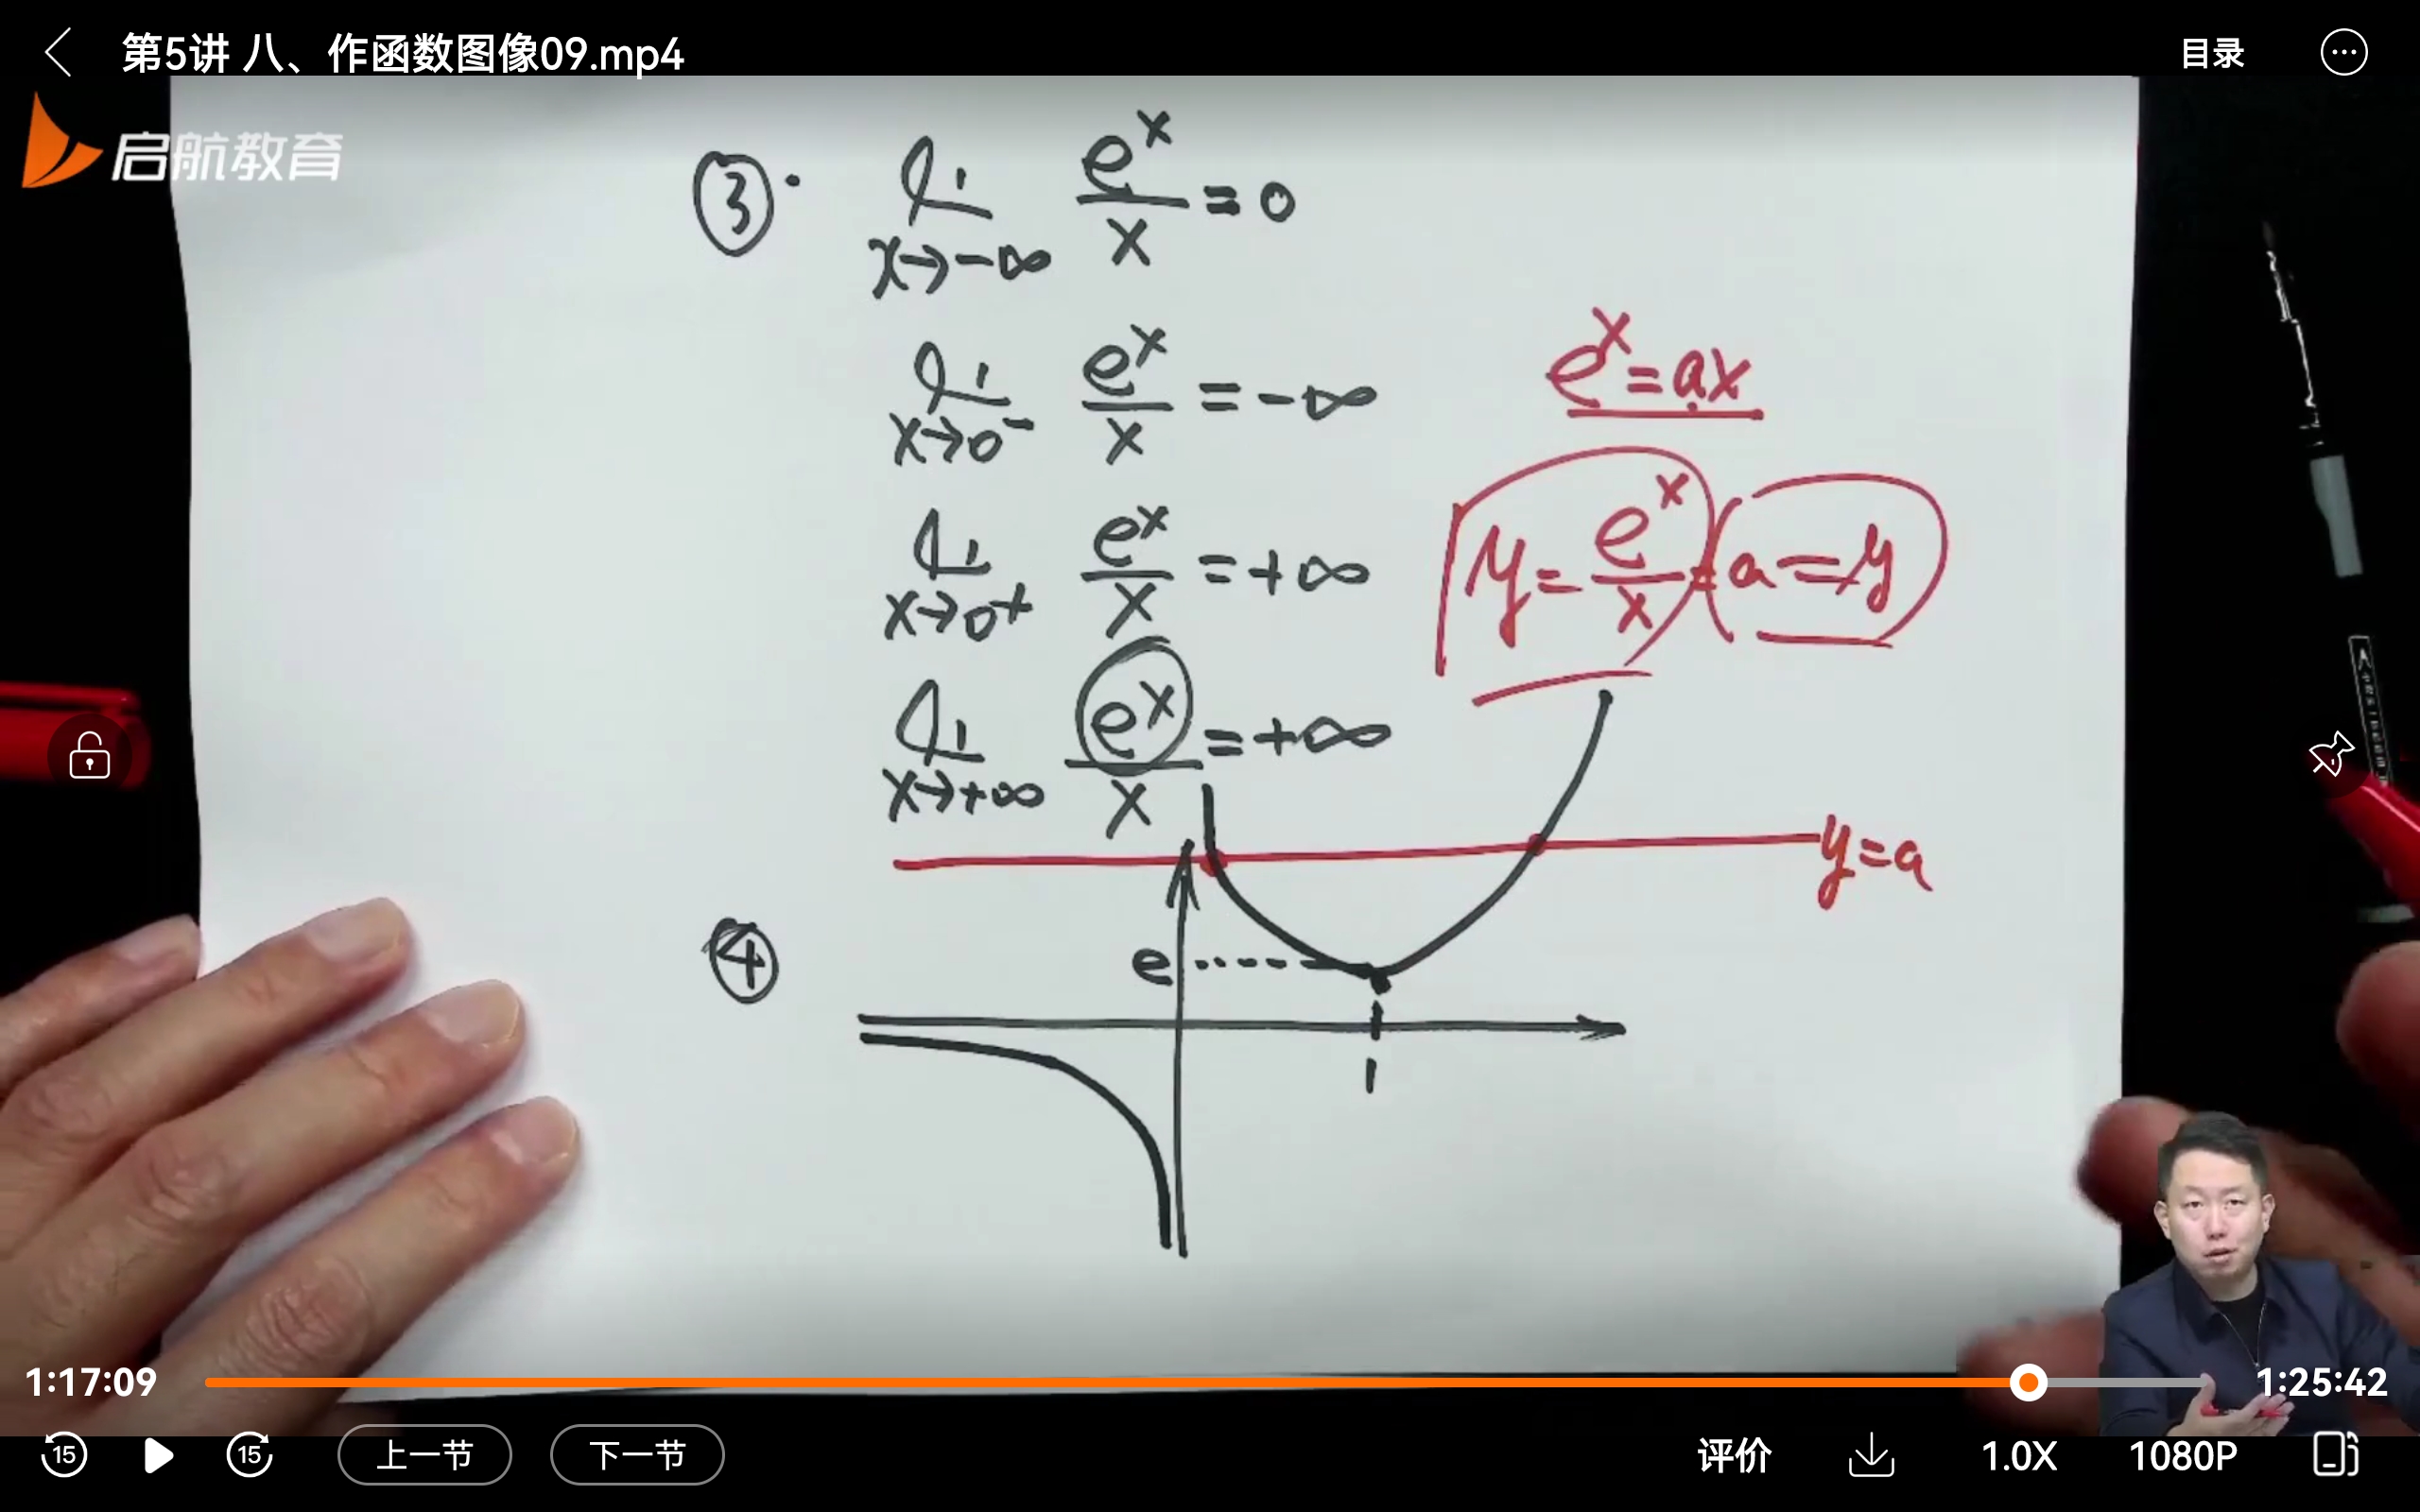 第5讲 八、作函数图像09.mp4
目录
启航教育
③· lim x→-∞ e^x/x = 0
lim x→0⁻ e^x/x = -∞
e^x = ax
lim x→0⁺ e^x/x = +∞
y = e^x/x = a = y
lim x→+∞ e^x/x = +∞
y=a
④
e
1
1:17:09
1:25:42
15
15
上一节
下一节
评价
1.0X
1080P